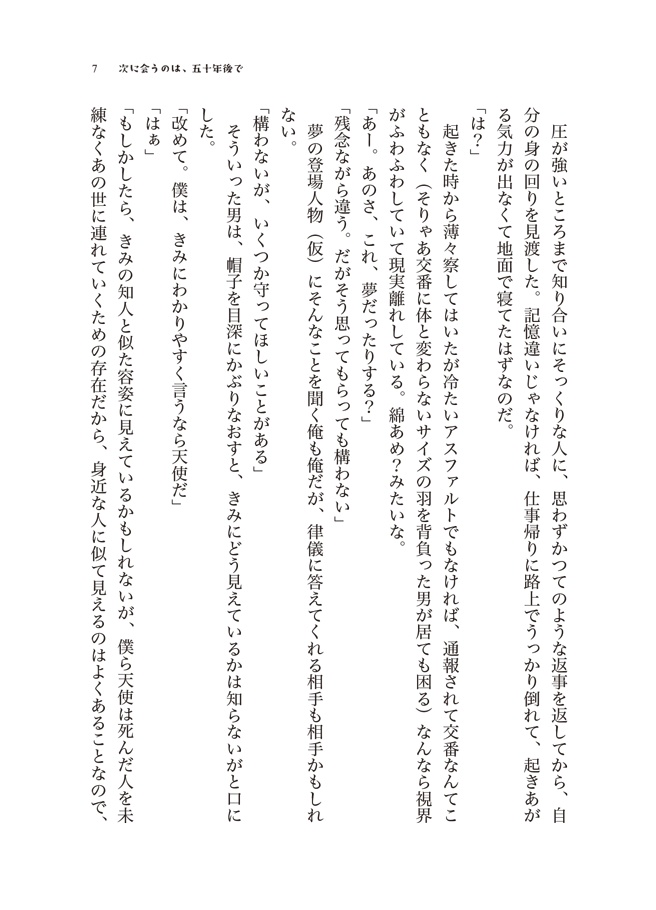 7 次に会うのは、五十年後で
　圧が強いところまで知り合いにそっくりな人に、思わずかつてのような返事を返してから、自
分の身の回りを見渡した。記憶違いじゃなければ、仕事帰りに路上でうっかり倒れて、起きあが
る気力が出なくて地面で寝てたはずなのだ。
「は？」
　起きた時から薄々察してはいたが冷たいアスファルトでもなければ、通報されて交番なんてこ
ともなく（そりゃあ交番に体と変わらないサイズの羽を背負った男が居ても困る）なんなら視界
がふわふわしていて現実離れしている。綿あめ？みたいな。
「あー。あのさ、これ、夢だったりする？」
「残念ながら違う。だがそう思ってもらっても構わない」
　夢の登場人物（仮）にそんなことを聞く俺も俺だが、律儀に答えてくれる相手も相手かもしれ
ない。
「構わないが、いくつか守ってほしいことがある」
　そういった男は、帽子を目深にかぶりなおすと、きみにどう見えているかは知らないがと口に
した。
「改めて。僕は、きみにわかりやすく言うなら天使だ」
「はぁ」
「もしかしたら、きみの知人と似た容姿に見えているかもしれないが、僕ら天使は死んだ人を未
練なくあの世に連れていくための存在だから、身近な人に似て見えるのはよくあることなので、